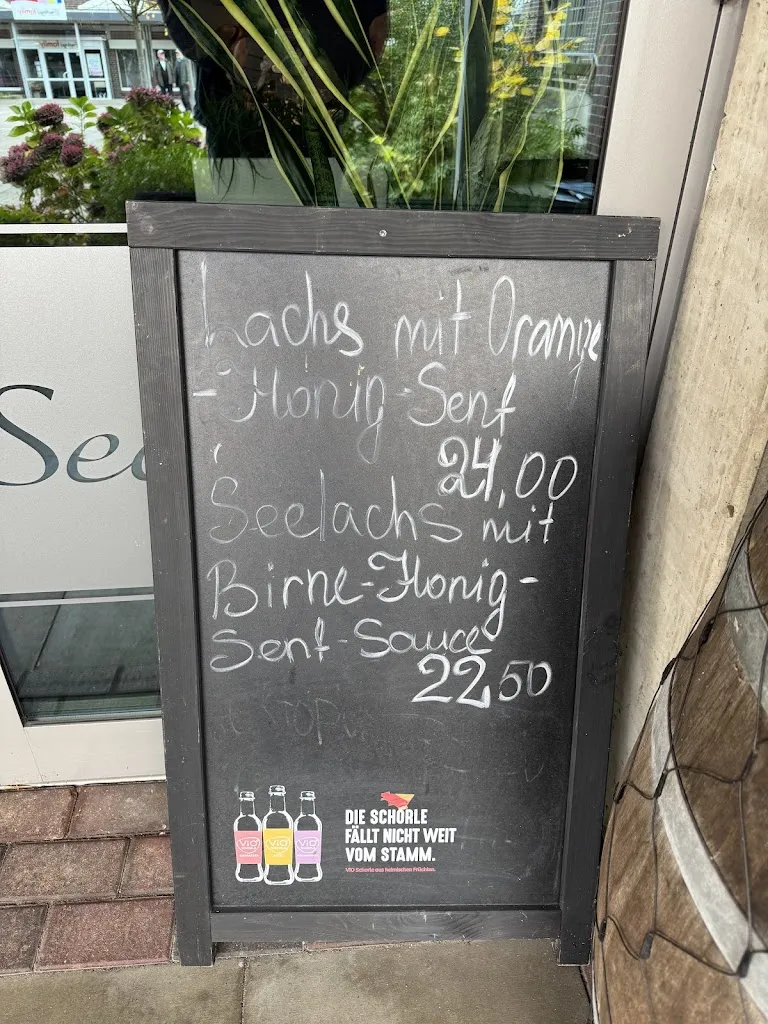 Lachs mit Orange
-Honig-Senf
24,00
Seelachs mit
Birne-Honig-
Senf-Sauce
22,50
ViO ViO ViO
DIE SCHORLE
FÄLLT NICHT WEIT
VOM STAMM.
ViO Schorle aus heimischen Früchten.
See